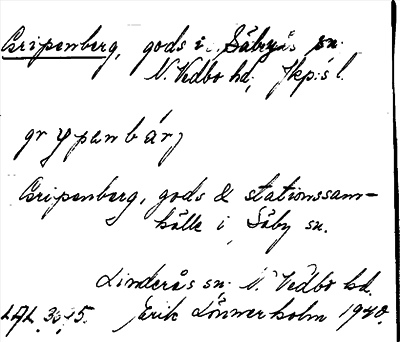 Gripenberg, gods i Säby sn.
N. Vedbo hd, Jkp:s l.
grypenbärj
Gripenberg, gods & stationssam-
hälle i Säby sn.
Linderås sn. N. Vedbo hd.
Erik Lönnerholm 1940.